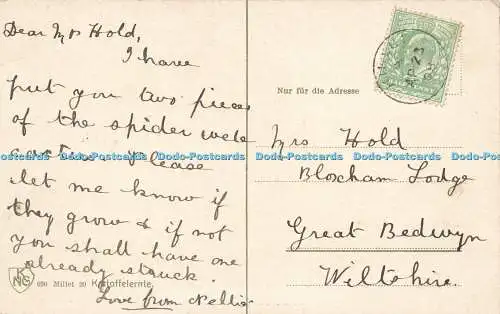 Dear Mrs Hold,
I have
put you two pieces
of the spider web
cactus please
let me know if
they grow & if not
you shall have one
already struck.
Love from Nellie
KNG
690 Millet 20 Kartoffelernte.
Nur für die Adresse
Mrs Hold
Bloxham Lodge
Great Bedwyn
Wiltshire.
Dodo-Postcards Dodo-Postcards Dodo-Postcards Dodo-Postcards Dodo-Postcards